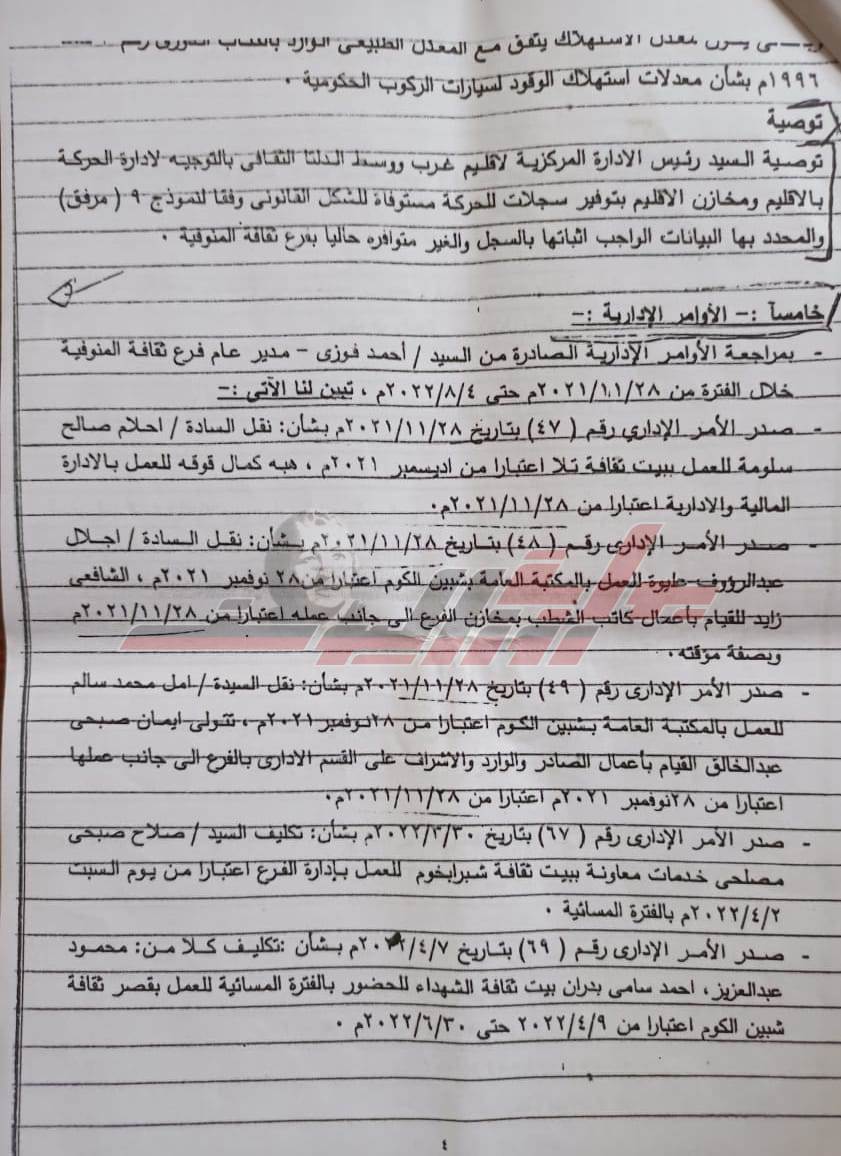 معدل الاستهلاك يتفق مع المعدل الطبيعى الوارد بالكتاب الدورى رقم
١٩٩٦م بشأن معدلات استهلاك الوقود لسيارات الركوب الحكومية .
توصية
توصية السيد رئيس الادارة المركزية لاقليم غرب ووسط الدلتا الثقافى بالتوجيه لادارة الحركة
بالاقليم ومخازن الاقليم بتوفير سجلات للحركة مستوفاة للشكل القانونى وفقا لنموذج ٩ ( مرفق)
والمحدد بها البيانات الواجب اثباتها بالسجل والغير متوافره حاليا بفرع ثقافة المنوفية .
خامساً :- الأوامر الإدارية :-
- بمراجعة الأوامر الإدارية الصادرة من السيد / أحمد فوزى – مدير عام فرع ثقافة المنوفية
خلال الفترة من ٢٠٢١/١١/٢٨م حتى ٢٠٢٢/٨/٤م ، تبين لنا الآتى :-
- صدر الأمر الإداري رقم ( ٤٧) بتاريخ ٢٠٢١/١١/٢٨م بشأن: نقل السادة / احلام صالح
سلومة للعمل ببيت ثقافة تلا اعتبارا من ١ديسمبر ٢٠٢١م ، هبه كمال قوقه للعمل بالادارة
المالية والادارية اعتبارا من ٢٠٢١/١١/٢٨م.
- صدر الأمر الإدارى رقم ( ٤٨) بتاريخ ٢٠٢١/١١/٢٨م بشأن: نقل السادة / اجلال
عبدالرؤوف طيوة للعمل بالمكتبة العامة بشبين الكوم اعتبارا من٢٨ نوفمبر ٢٠٢١م ، الشافعى
زايد للقيام بأعمال كاتب الشطب بمخازن الفرع الى جانب عمله اعتبارا من ٢٠٢١/١١/٢٨م
وبصفة مؤقته.
- صدر الأمر الإدارى رقم ( ٤٩) بتاريخ ٢٠٢١/١١/٢٨م بشأن: نقل السيدة / امل محمد سالم
للعمل بالمكتبة العامة بشبين الكوم اعتبارا من ٢٨نوفمبر ٢٠٢١م ، تتولى ايمان صبحى
عبدالخالق القيام بأعمال الصادر والوارد والاشراف على القسم الادارى بالفرع الى جانب عملها
اعتبارا من ٢٨نوفمبر ٢٠٢١م اعتبارا من ٢٠٢١/١١/٢٨م.
- صدر الأمر الإدارى رقم ( ٦٧) بتاريخ ٢٠٢٢/٣/٣٠م بشأن: تكليف السيد / صلاح صبحى
مصلحى خدمات معاونة ببيت ثقافة شبرابخوم للعمل بإدارة الفرع اعتبارا من يوم السبت
٢٠٢٢/٤/٢م بالفترة المسائية .
- صدر الأمر الإدارى رقم ( ٦٩) بتاريخ ٢٠٢٢/٤/٧م بشأن :تكليف كلا من: محمود
عبدالعزيز ، احمد سامى بدران بيت ثقافة الشهداء للحضور بالفترة المسائية للعمل بقصر ثقافة
شبين الكوم اعتبارا من ٢٠٢٢/٤/٩ حتى ٢٠٢٢/٦/٣٠م .
٤